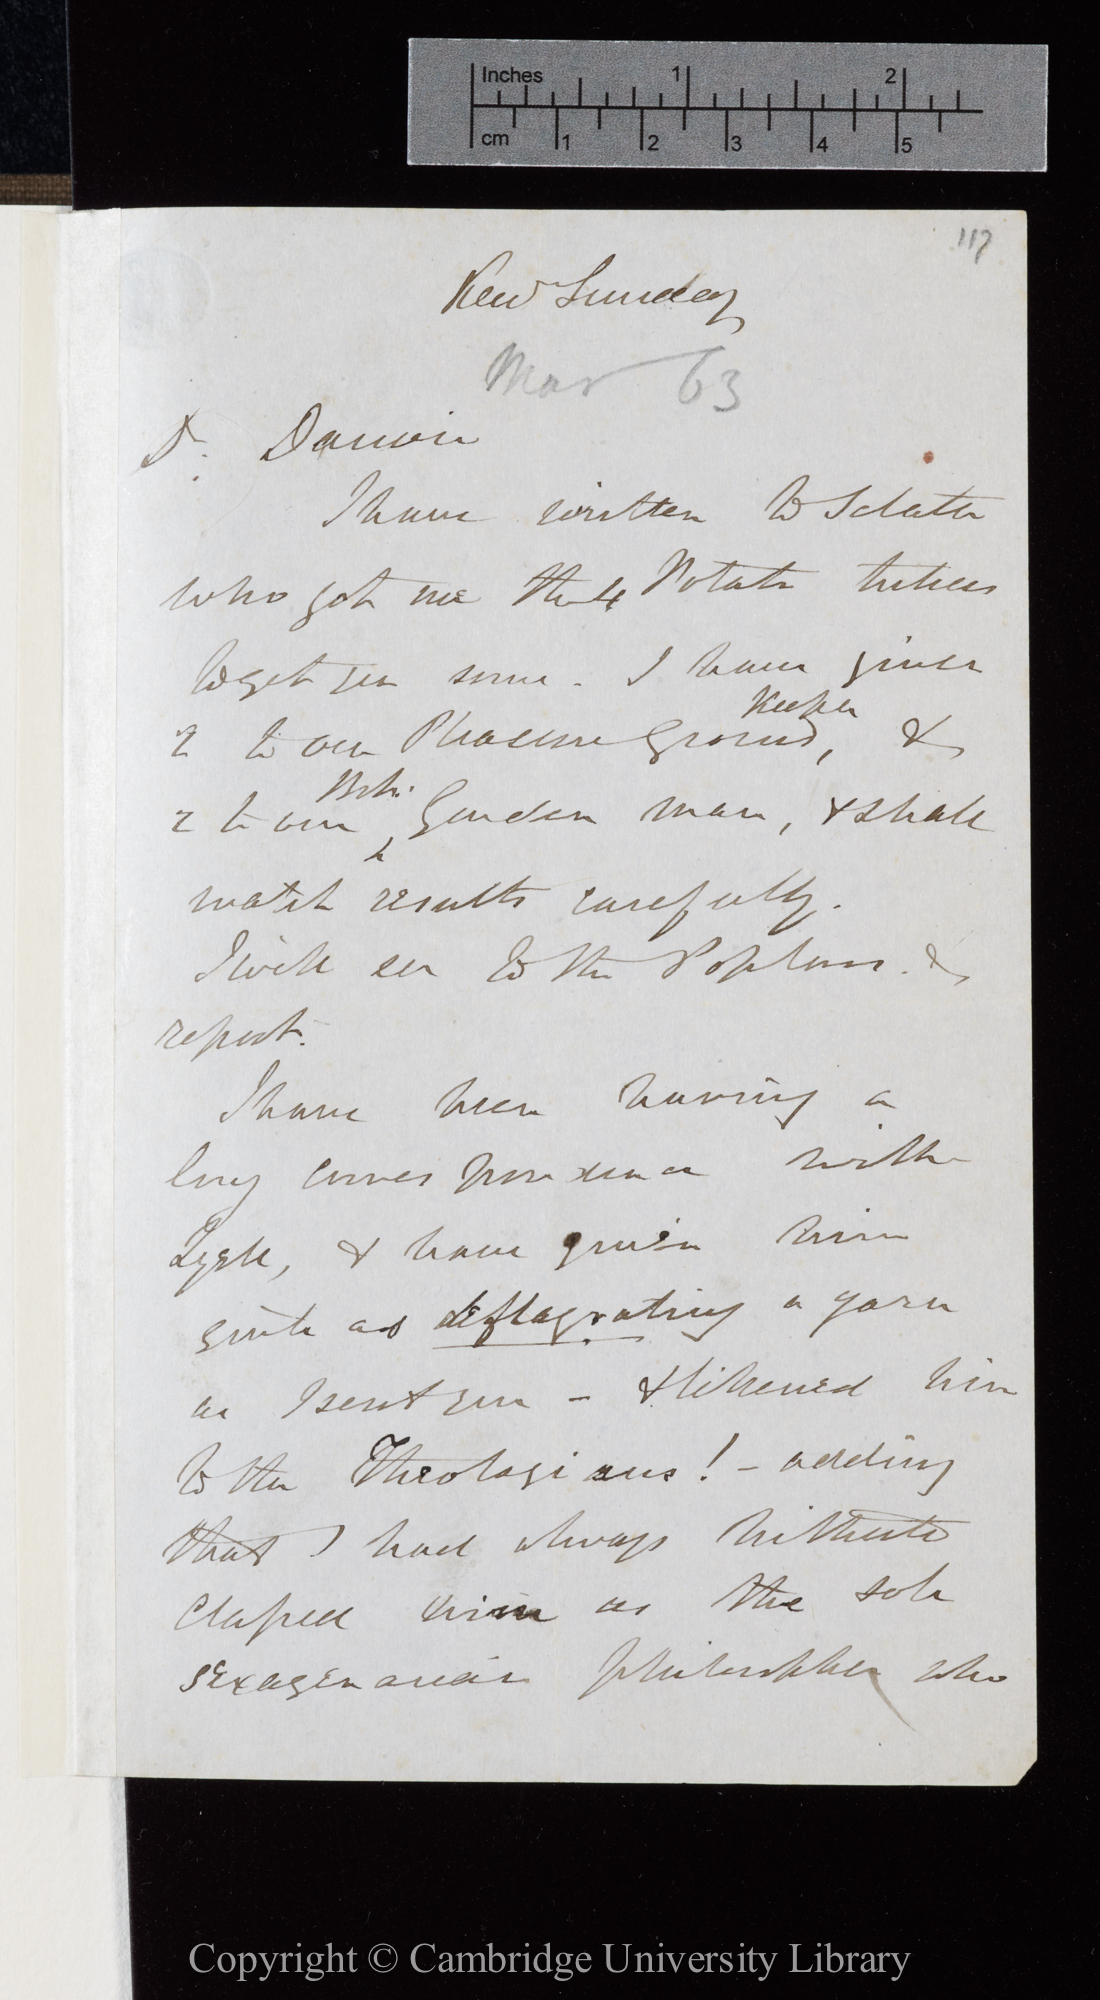 Inches 1 2
cm 1 2 3 4 5
117
Kew Sunday
Mar 63
Dr. Darwin
I have written to Sclater
who got me the 4 Potato tubers
to get you some. I have given
Keeper
2 to our Pleasure Ground, &
Bot.
2 to our Garden man, & shall
watch results carefully.
I will see to the Poplars. &
report.
I have been having a
long correspondence with
Lyell, & have given him
quite as deflagrating a yarn
as I sent you — & likened him
to the Theologians! — adding
that I had always hitherto
classed him as the sole
sexagenarian philosopher who
Copyright © Cambridge University Library